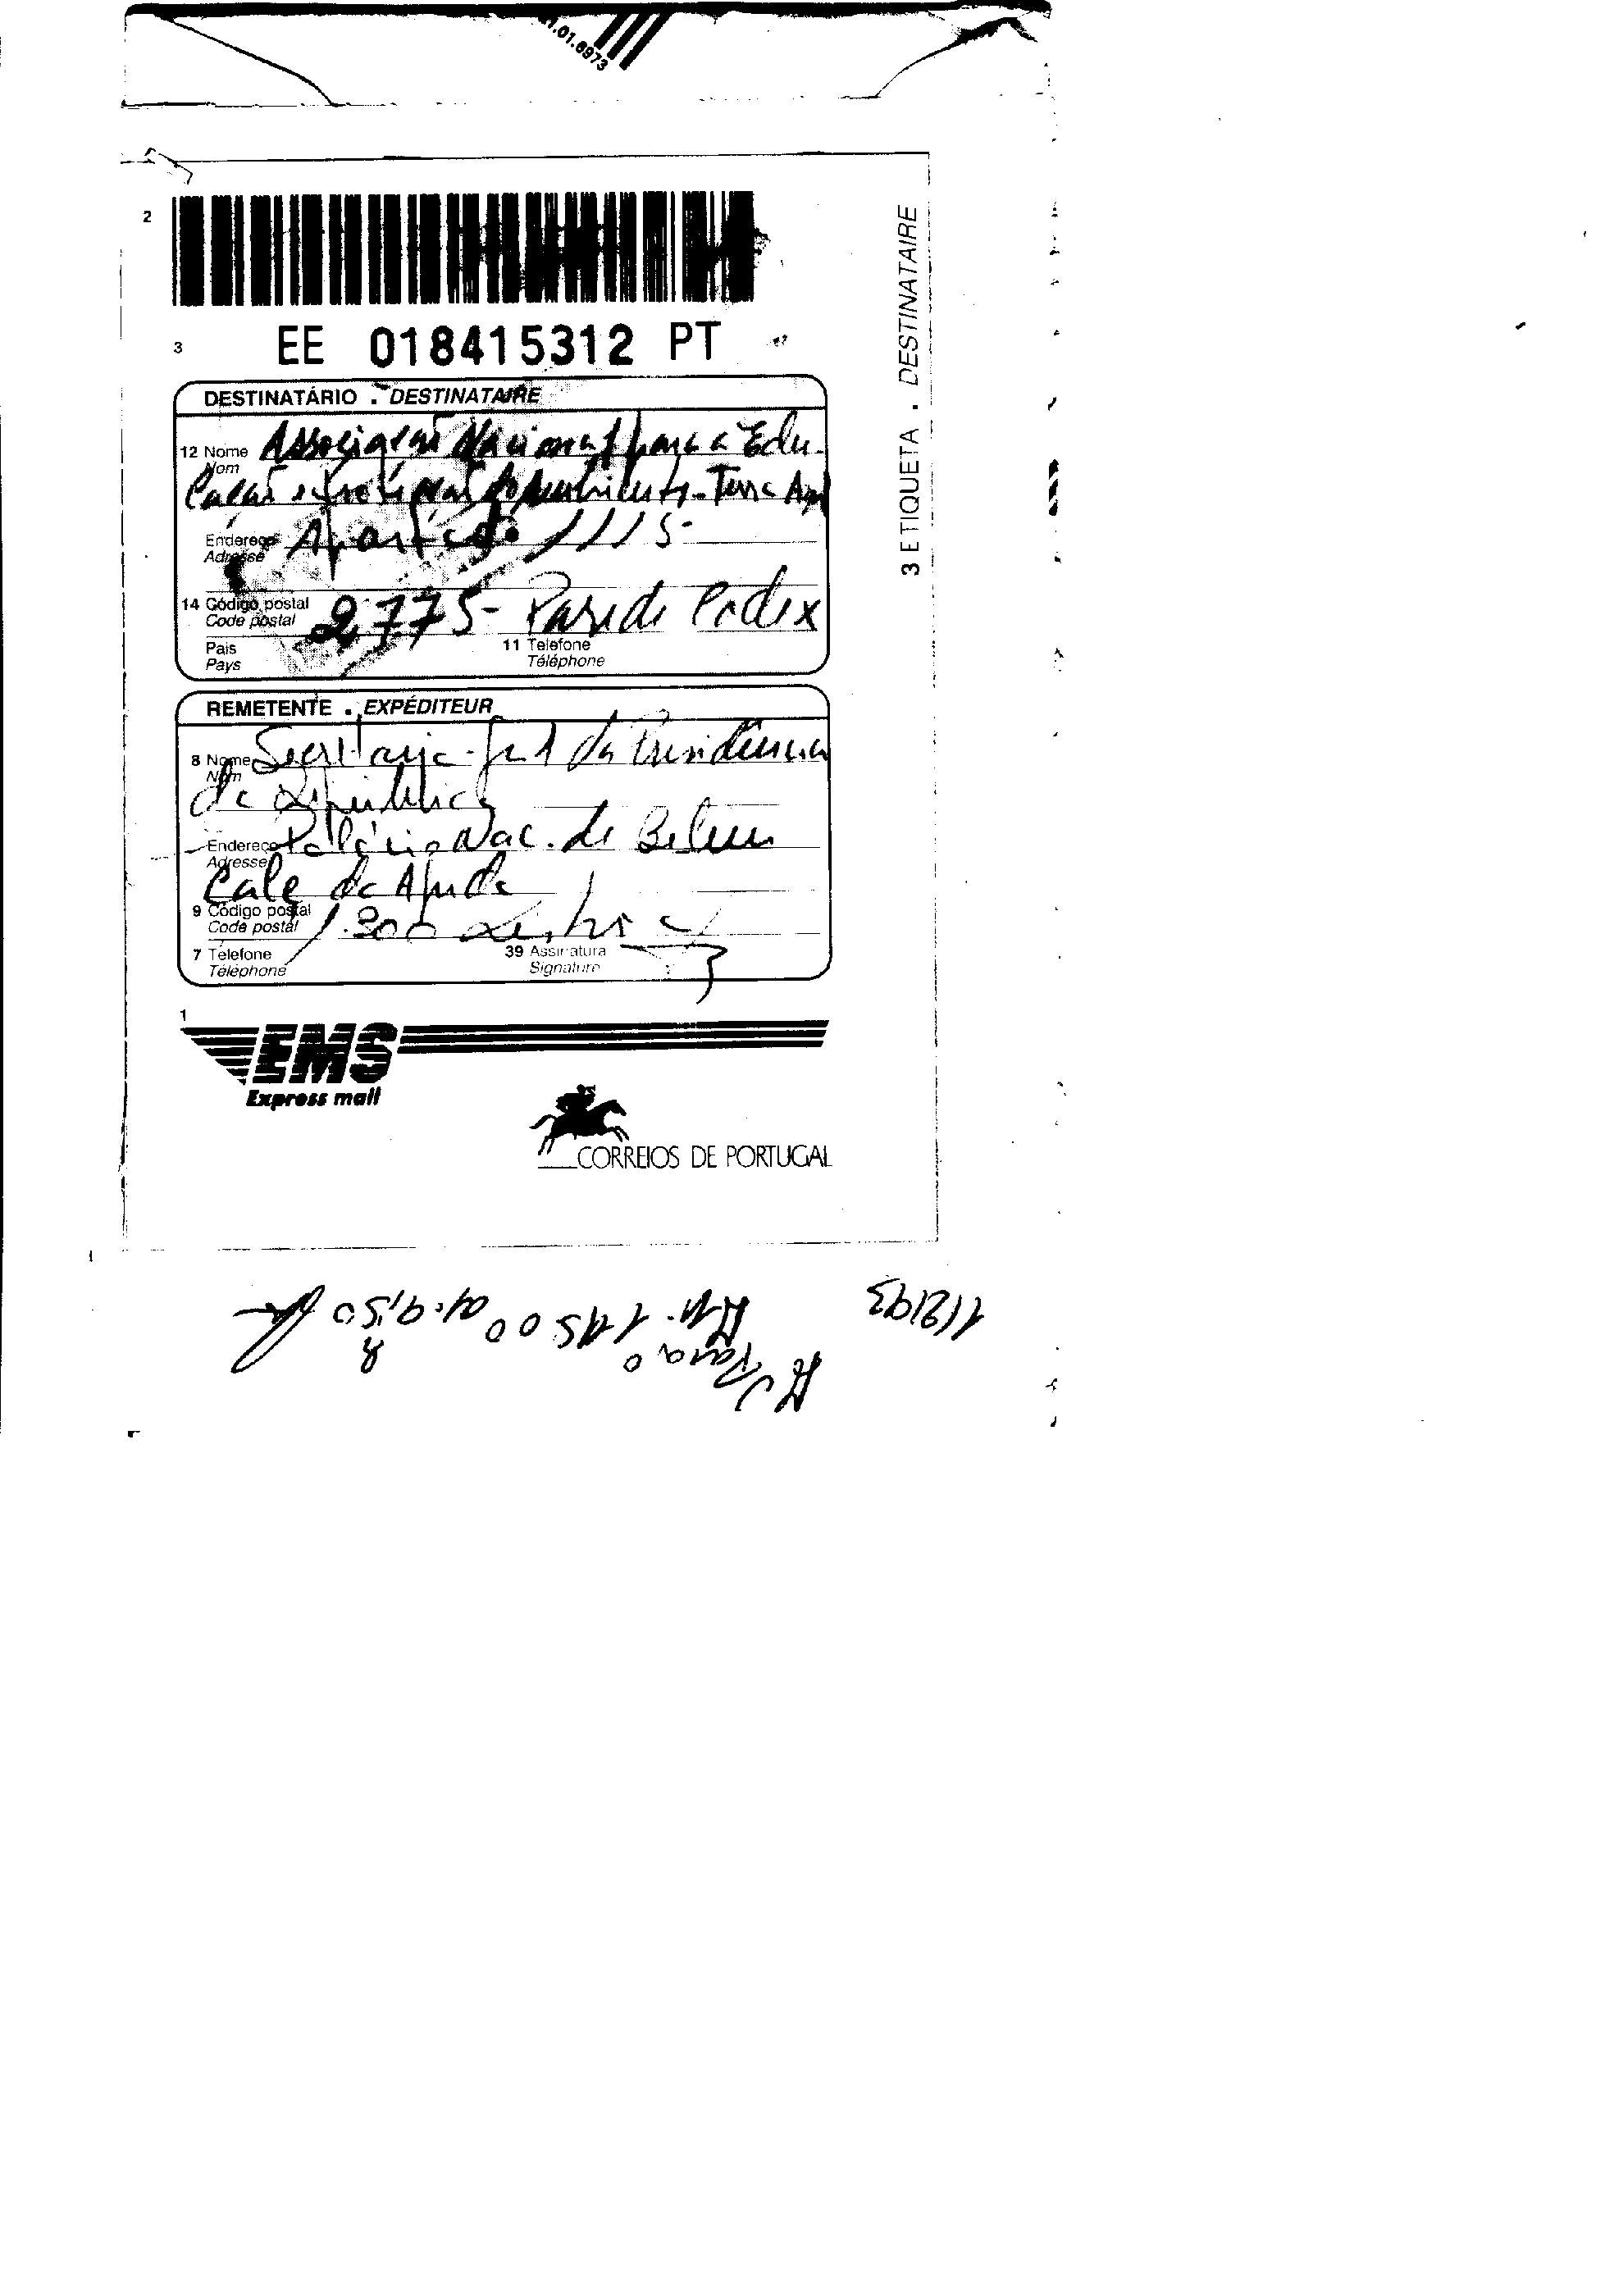 1.01.6973
2
3 EE 018415312 PT
3 ETIQUETA . DESTINATAIRE
DESTINATÁRIO . DESTINATAIRE
12 Nome Associação Nacional para a Edu-
Nom
cação e Protecção do Ambiente - Terra
Endereço Apartado 1115
Adresse
14 Código postal 2775 - Parede Codex
Code postal
País 11 Telefone
Pays Téléphone
REMETENTE . EXPÉDITEUR
8 Nome Secretaria-Geral da Presidência
Nom
da República
Endereço Palácio Nac. de Belem
Adresse
Calç da Ajuda
9 Código postal 1.300 Lisboa
Code postal
7 Telefone 39 Assinatura
Téléphone Signature
1
EMS
Express mail
CORREIOS DE PORTUGAL
1/2/93